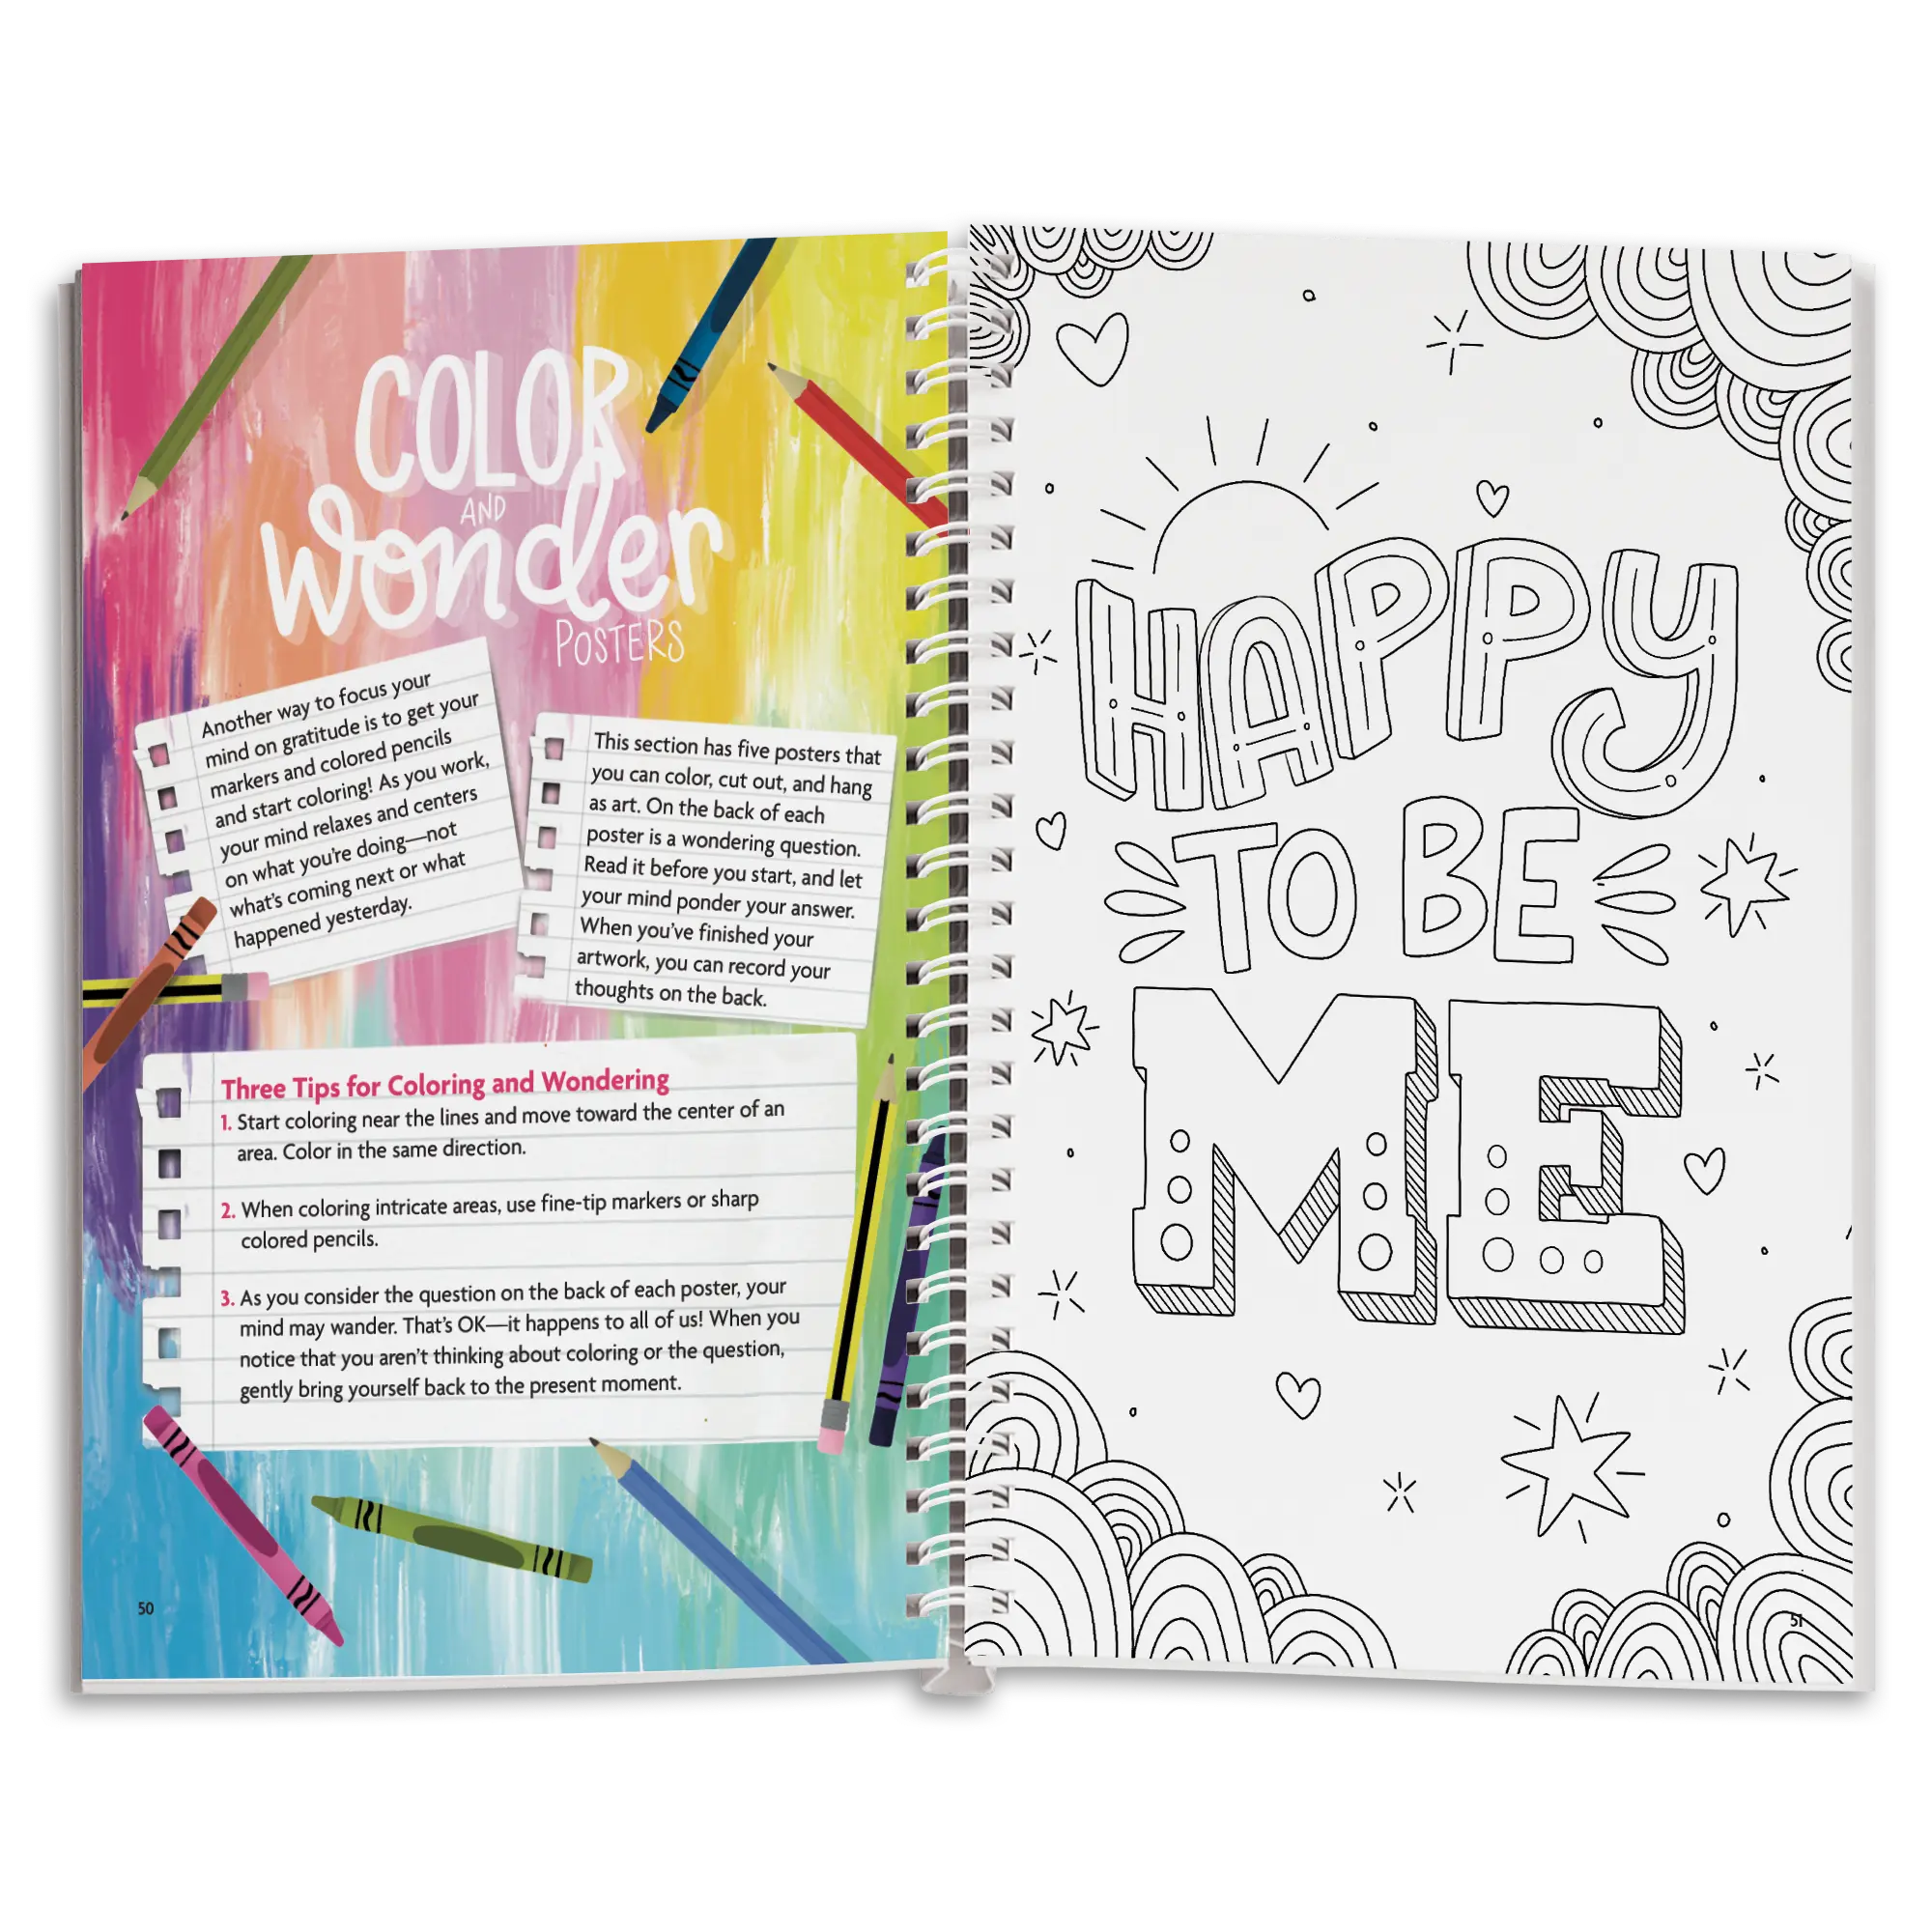 COLOR
AND
Wonder
POSTERS
Another way to focus your
mind on gratitude is to get your
markers and colored pencils
and start coloring! As you work,
your mind relaxes and centers
on what you're doing—not
what's coming next or what
happened yesterday.
This section has five posters that
you can color, cut out, and hang
as art. On the back of each
poster is a wondering question.
Read it before you start, and let
your mind ponder your answer.
When you've finished your
artwork, you can record your
thoughts on the back.
Three Tips for Coloring and Wondering
1. Start coloring near the lines and move toward the center of an
area. Color in the same direction.
2. When coloring intricate areas, use fine-tip markers or sharp
colored pencils.
3. As you consider the question on the back of each poster, your
mind may wander. That's OK—it happens to all of us! When you
notice that you aren't thinking about coloring or the question,
gently bring yourself back to the present moment.
50
HAPPY
TO BE
ME
51